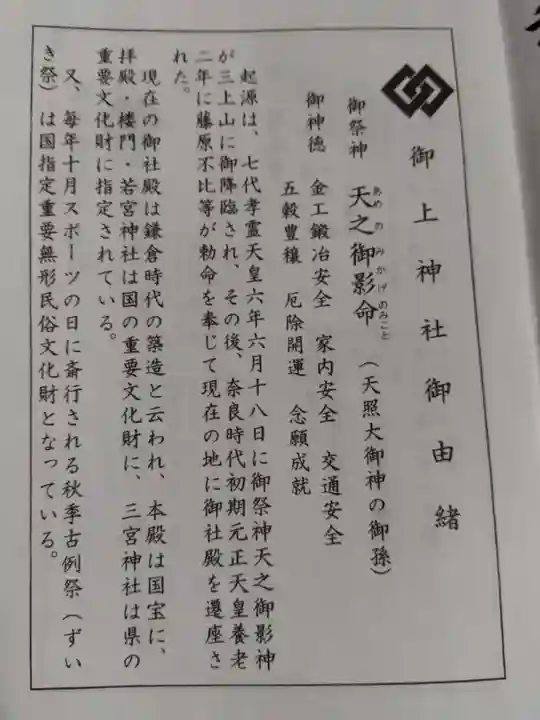 御上神社御由緒
御祭神 天之御影命 (天照大御神の御孫)
あめのみかげのみこと
御神徳 金工鍛冶安全 家内安全 交通安全
五穀豊穣 厄除開運 念願成就
起源は、七代孝霊天皇六年六月十八日に御祭神天之御影神
が三上山に御降臨され、その後、奈良時代初期元正天皇養老
二年に藤原不比等が勅命を奉じて現在の地に御社殿を遷座さ
れた。
現在の御社殿は鎌倉時代の築造と云われ、本殿は国宝に、
拝殿・楼門・若宮神社は国の重要文化財に、三宮神社は県の
重要文化財に指定されている。
又、毎年十月スポーツの日に斎行される秋季古例祭(ずい
き祭)は国指定重要無形民俗文化財となっている。